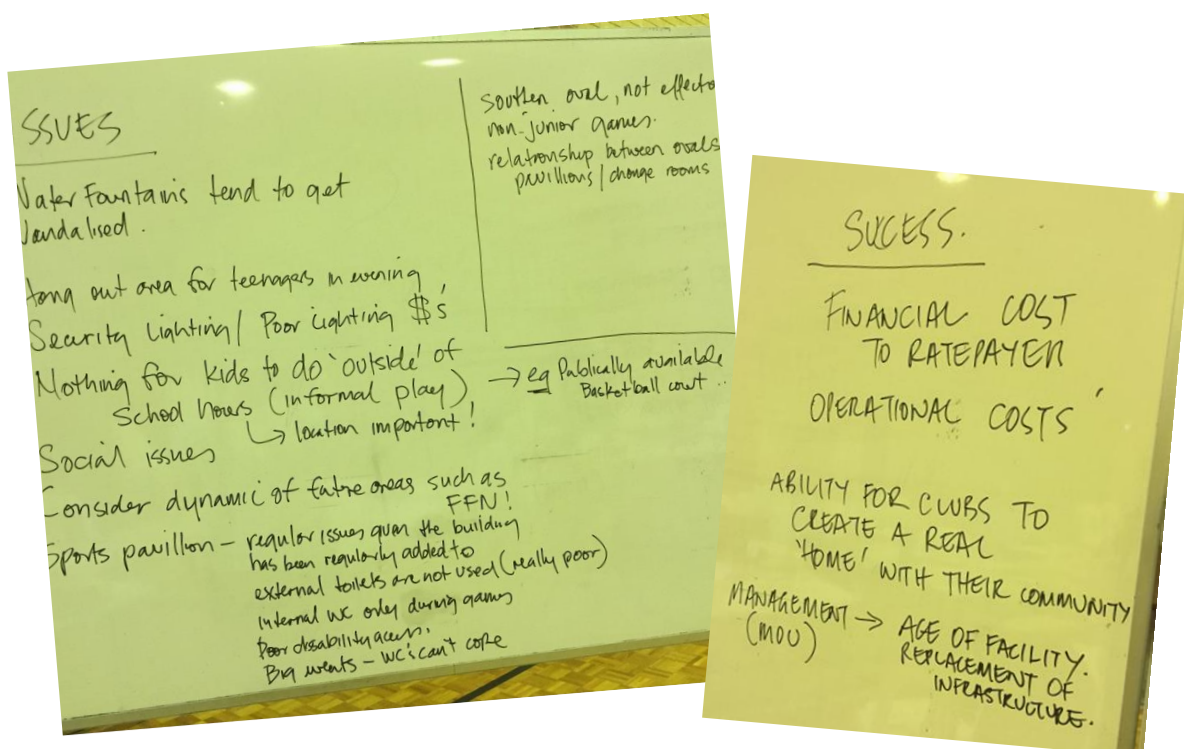 ISSUES
Water Fountains tend to get
Vandalised.
Hang out area for teenagers in evening
Security Lighting / Poor Lighting $'s
Nothing for kids to do 'outside' of
School hours (informal play)
↳ location important!
→ eg Publically available
Basketball court ..
Social issues
Consider dynamic of future areas such as
FFN!
Sports pavillion - regular issues given the building
has been regularly added to
external toilets are not used (really poor)
internal WC only during games
Poor disability access.
Big events - WC's can't cope
Southen oval, not effective
non-junior games.
relationship between ovals
pavillions / change rooms
SUCESS.
FINANCIAL COST
TO RATEPAYER
OPERATIONAL COSTS
ABILITY FOR CLUBS TO
CREATE A REAL
'HOME' WITH THEIR COMMUNITY
MANAGEMENT → AGE OF FACILITY.
(MOU) REPLACEMENT OF
INFRASTRUCTURE.